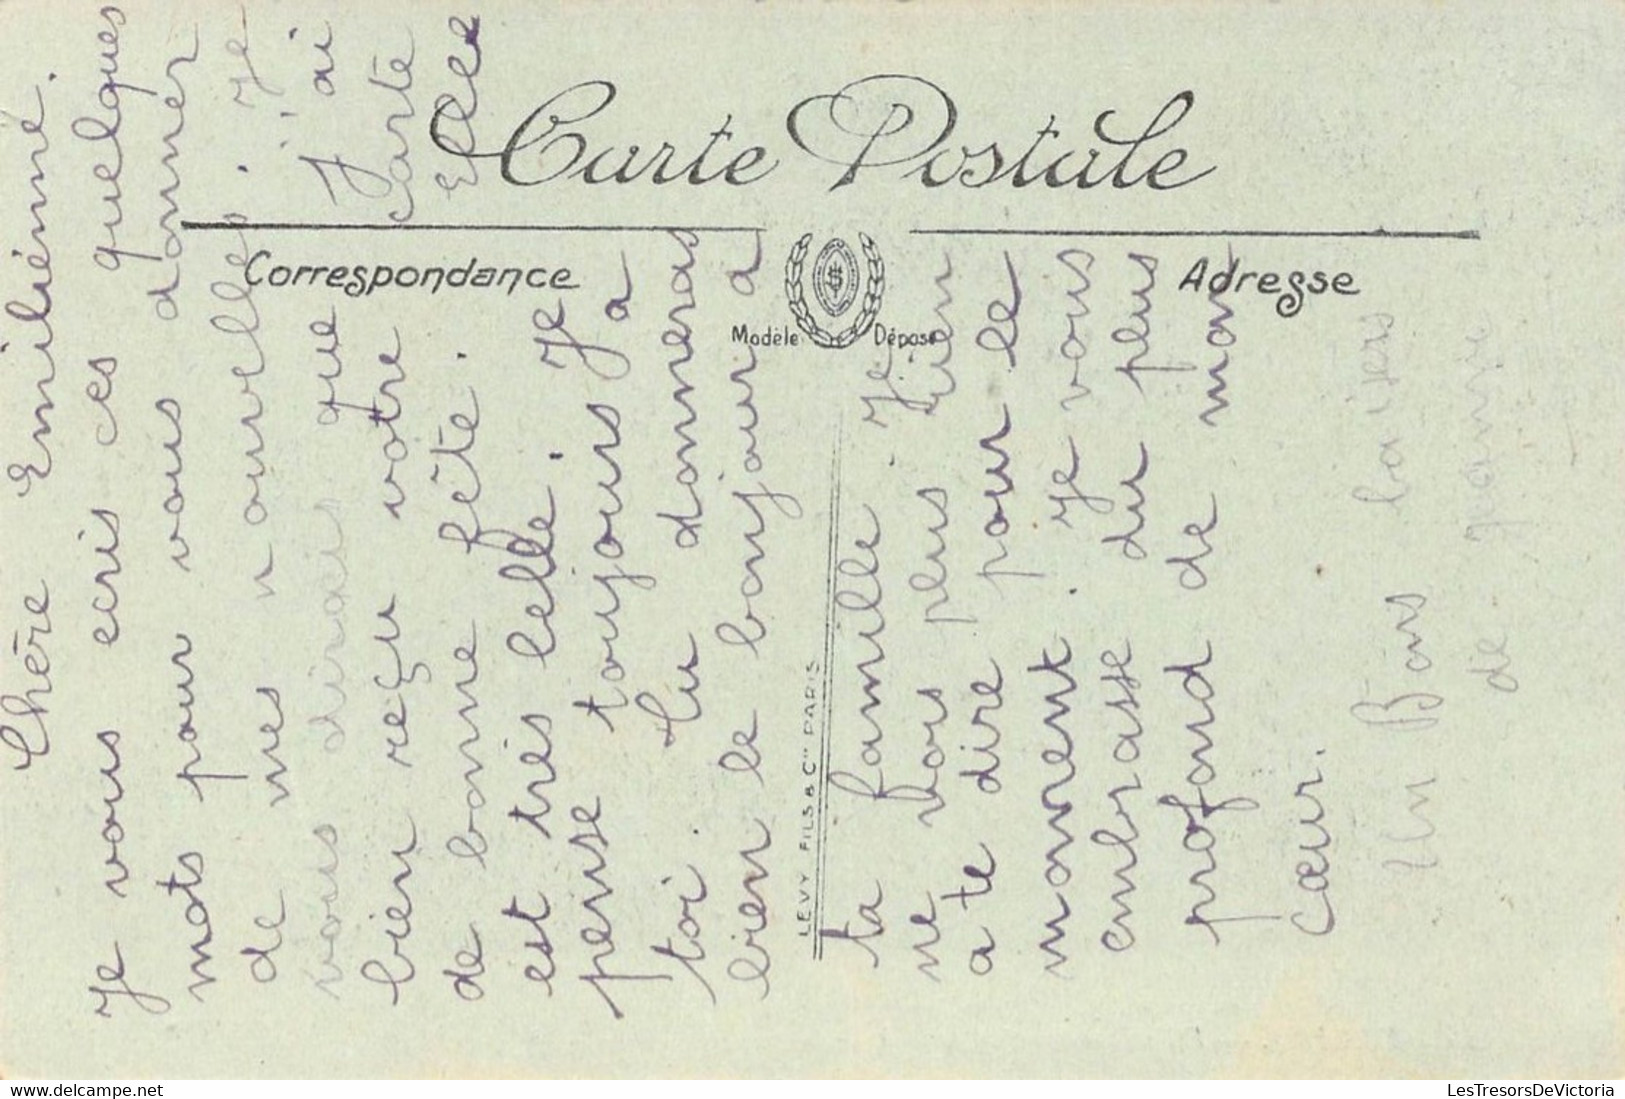 Carte Postale
Correspondance
Adresse
Modèle Déposé
LEVY FILS & Cie PARIS
Chère Emiliénne.
Je vous ecris ces quelques
mots pour vous donner
de mes nouvelles. Je
vous dirais que J'ai
bien reçu votre carte
de bonne fête. Elle
est très belle. Je
pense toujours a
toi. Tu donneras
bien le bonjour a
ta famille Je
ne vois plus rien
a te dire pour le
moment. Je vous
embrasse du plus
profond de mon
cœur.
Un Bons baisers
de
LesTresorsDeVictoria